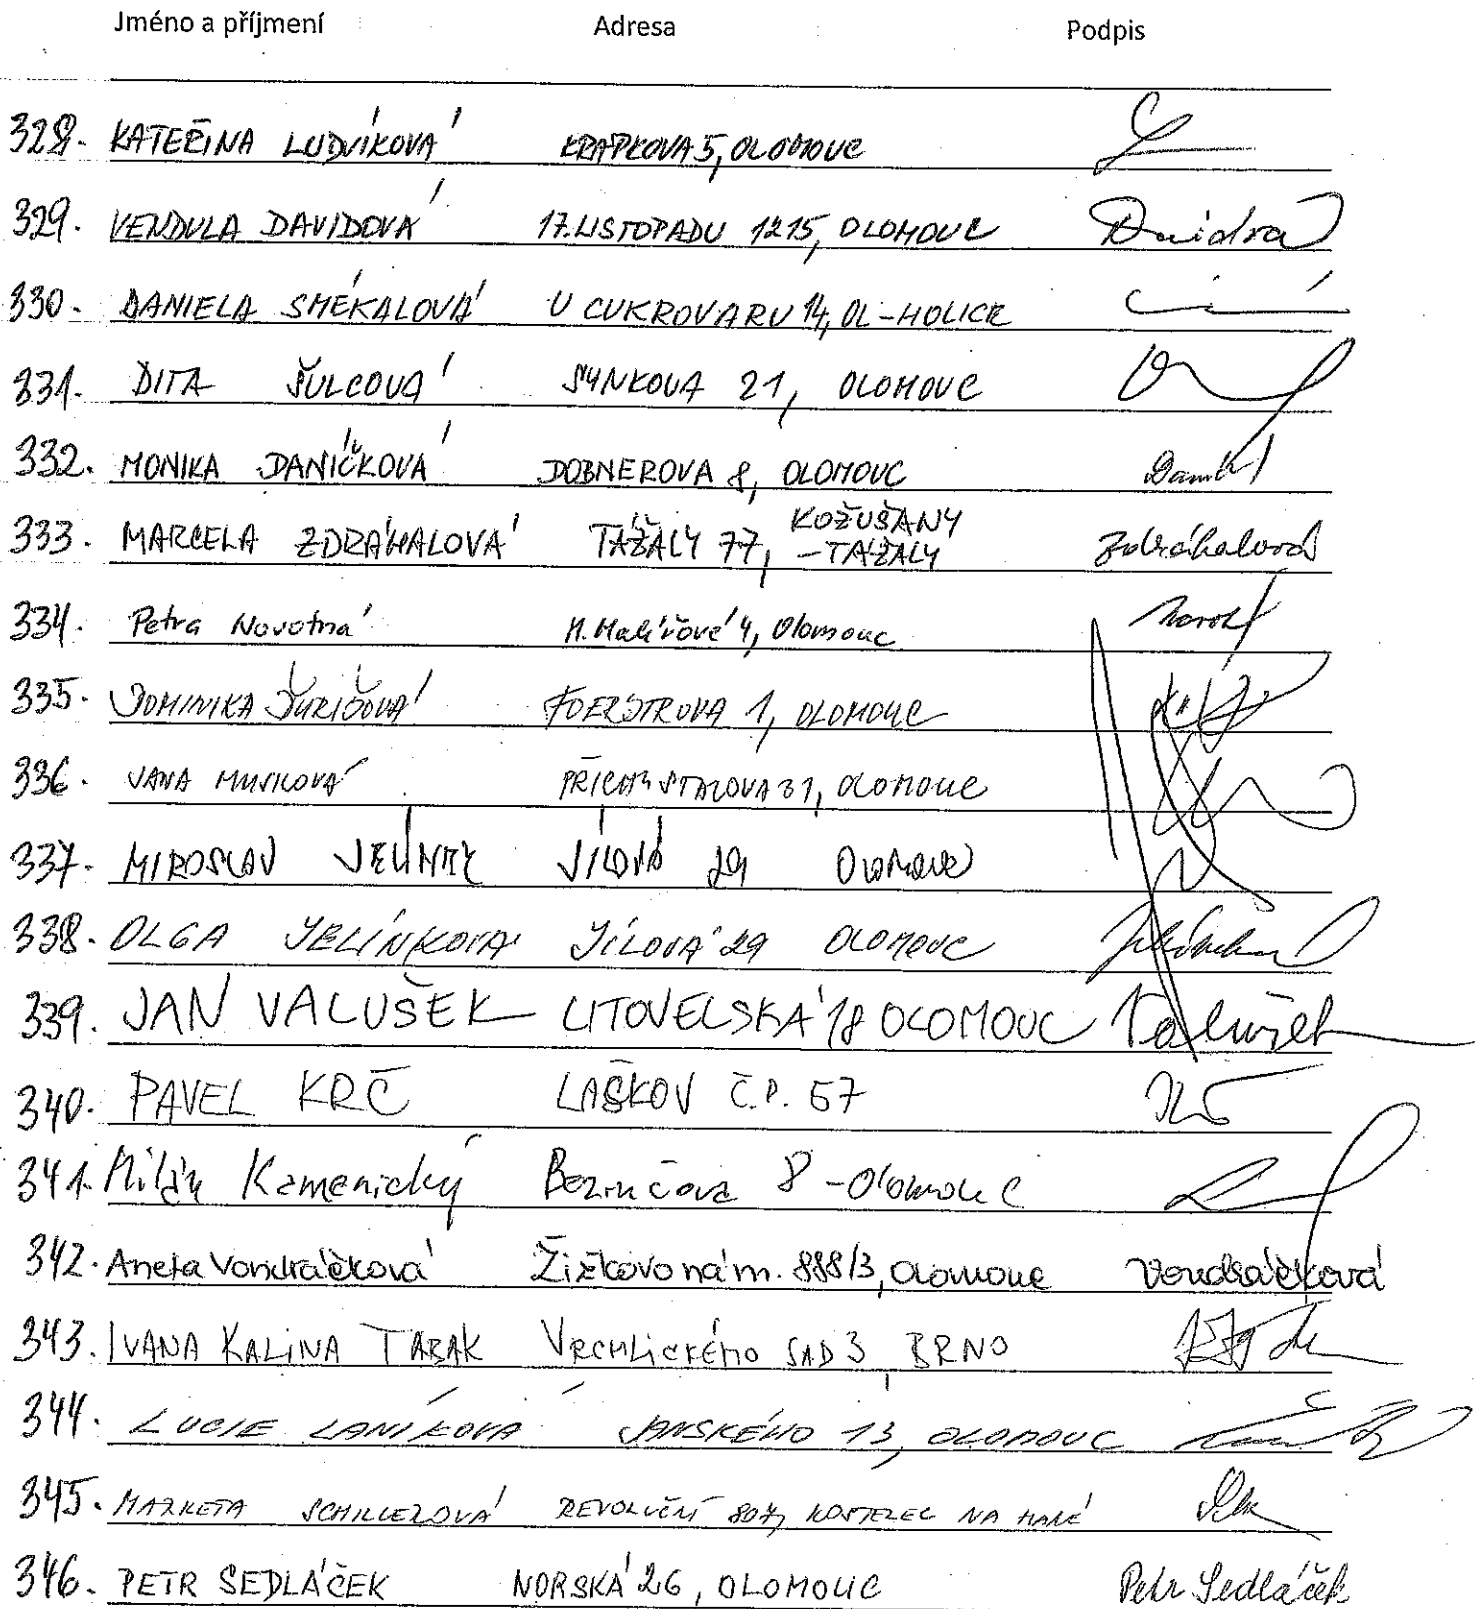 Jméno a příjmení Adresa Podpis
328. KATEŘINA LUDVÍKOVÁ KRAPKOVA 5, OLOMOUC
329. VENDULA DAVIDOVÁ 17. LISTOPADU 1215, OLOMOUC Davidová
330. DANIELA SMÉKALOVÁ U CUKROVARU 14, OL-HOLICE
331. DITA ŠULCOVÁ SYNKOVA 21, OLOMOUC
332. MONIKA DANÍČKOVÁ DOBNEROVA 8, OLOMOUC
333. MARCELA ZDRÁHALOVÁ TÁŽALY 77, KOŽUŠANY
-TÁŽALY Zdráhalová
334. Petra Novotná H. Malířové 4, Olomouc
335. DOMINIKA ĎURIŠOVÁ FOERSTROVA 1, OLOMOUC
336. JANA 31, OLOMOUC
337. MIROSLAV JELÍNEK JÍLOVÁ 29 OLOMOUC
338. OLGA JELÍNKOVÁ JÍLOVÁ 29 OLOMOUC
339. JAN VALUŠEK LITOVELSKÁ 18 OLOMOUC Valušek
340. PAVEL KRČ LAŠKOV Č.P. 57
341. Milan Kamenický Bezručova 8 - Olomouc
342. Aneta Vondráčková Žižkovo nám. 888/3, Olomouc Vondráčková
343. IVANA KALINA TABAK VRCHLICKÉHO SAD 3, BRNO
344. LUCIE LANÍKOVÁ JANSKÉHO 13, OLOMOUC
345. MARKETA SCHILLEROVÁ REVOLUČNÍ 807, KOSTELEC NA HANÉ
346. PETR SEDLÁČEK NORSKÁ 26, OLOMOUC Petr Sedláček